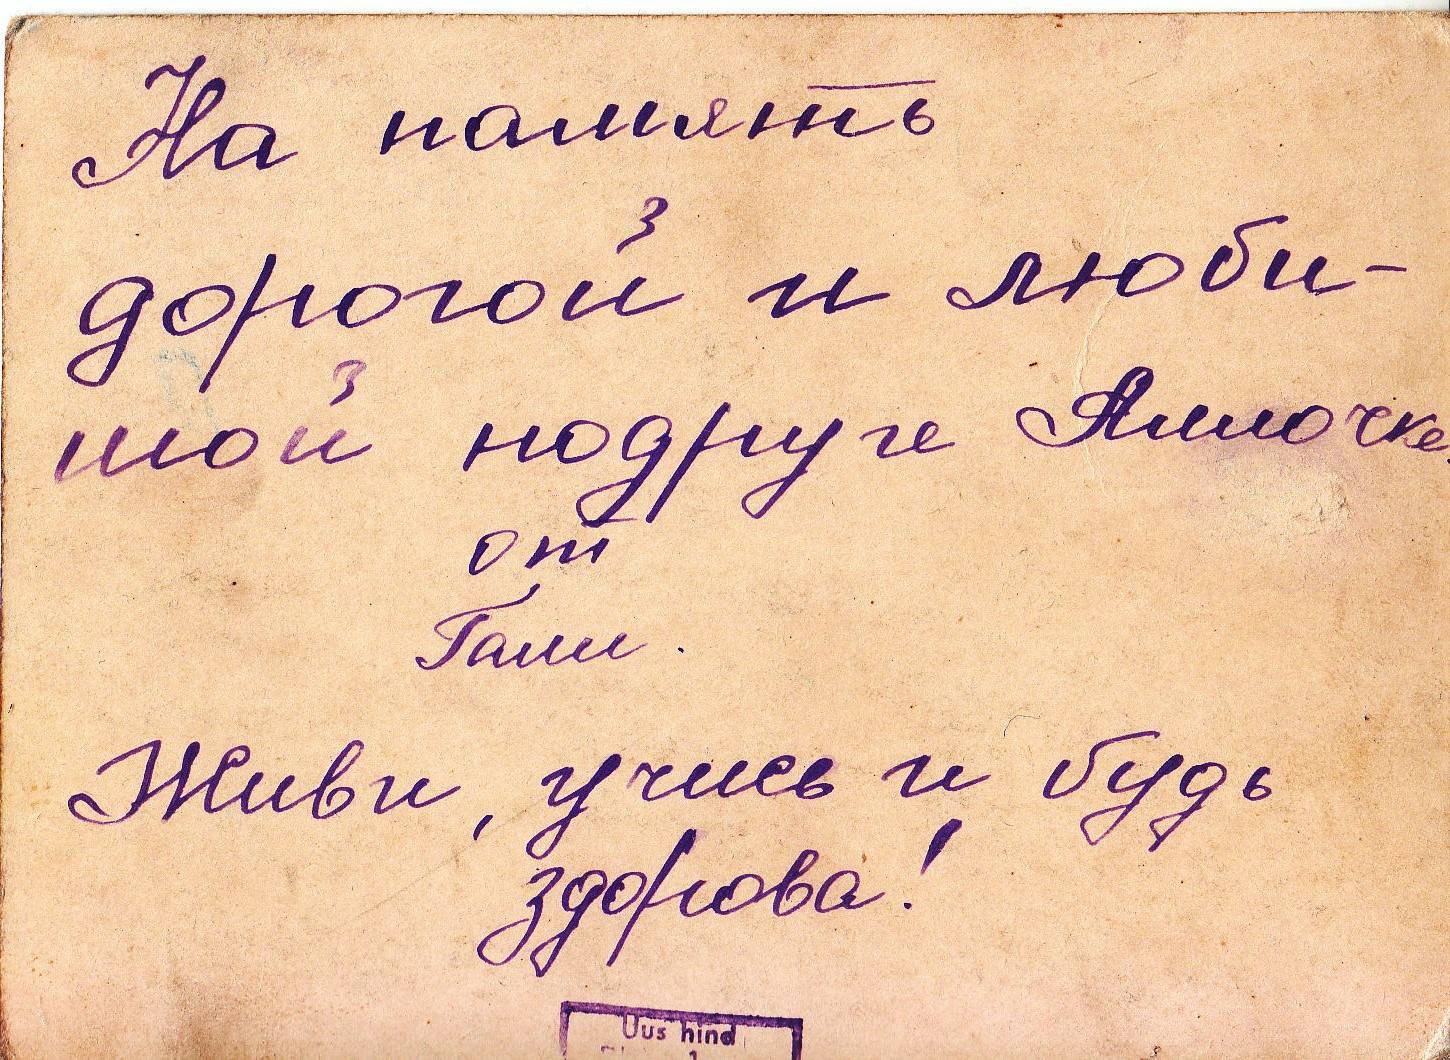 На память
дорогой и люби-
мой подруге Аллочке.
от
Гали.
Живи, учись и будь
здорова!
Uus hind